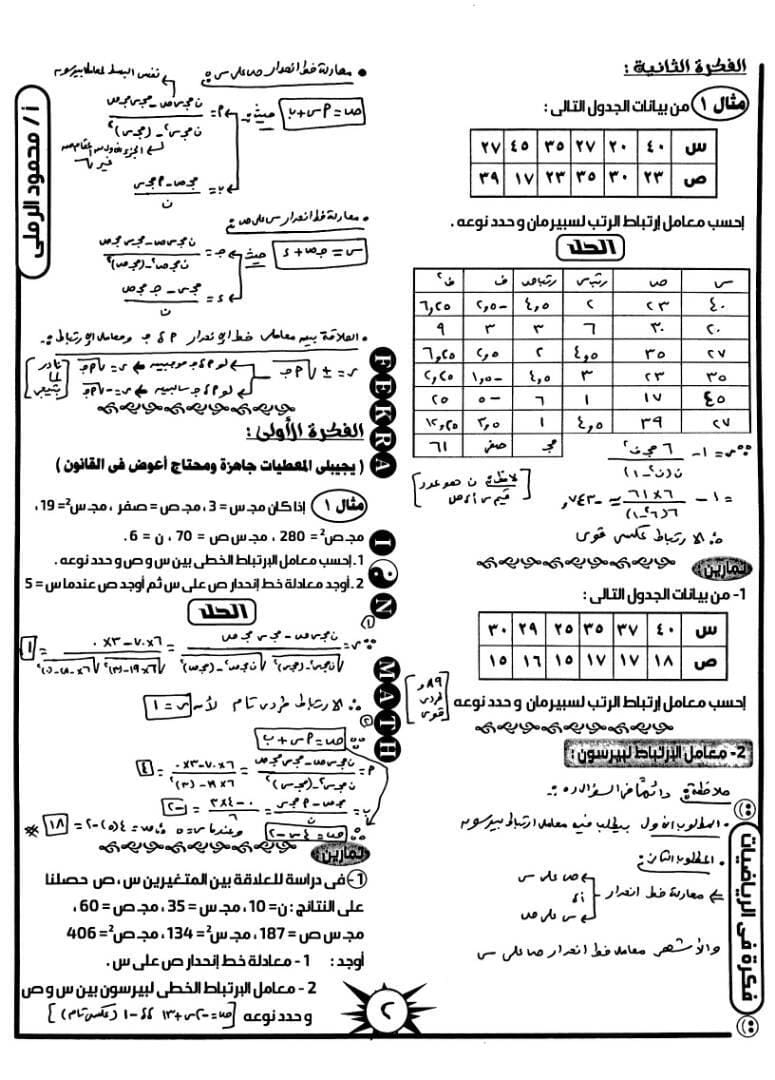 الفكرة الثانية :
مثال ١ من بيانات الجدول التالى :
س ٤٠ ٢٠ ٢٧ ٣٥ ٤٥ ٢٧
ص ٢٣ ٣٠ ٣٥ ٢٣ ١٧ ٣٩
إحسب معامل إرتباط الرتب لسبيرمان وحدد نوعه .
الحل
س ص رتبس رتبص ف ف٢
٤٠ ٢٣ ٢ ٤,٥ -٢,٥ ٦,٢٥
٢٠ ٣٠ ٦ ٣ ٣ ٩
٢٧ ٣٥ ٤,٥ ٢ ٢,٥ ٦,٢٥
٣٥ ٢٣ ٣ ٤,٥ -١,٥ ٢,٢٥
٤٥ ١٧ ١ ٦ -٥ ٢٥
٢٧ ٣٩ ٤,٥ ١ ٣,٥ ١٢,٢٥
مجـ صفر ٦١
∵ ر = ١ - ٦ مجـ ف٢
ن(ن٢-١)
= ١ - ٦×٦١ = -٧٤٣,
٦(٦٢-١)
لاحظ أن ن هو عدد
قيم س أو ص
∴ الارتباط عكسى قوى
تمارين :
1- من بيانات الجدول التالى :
س ٤٠ ٣٧ ٣٥ ٢٥ ٢٩ ٣٠
ص ١٨ ١٧ ١٧ ١٥ ١٦ ١٥
إحسب معامل إرتباط الرتب لسبيرمان وحدد نوعه
٨٩,
طردى
قوى
2- معامل الإرتباط لبيرسون :
ملاحظة : دائمًا فى السؤال ده :-
• المطلوب الأول بيطلب فيه معامل ارتباط بيرسون
• المطلوب الثانى :
معادلة خط انحدار
ص على س
أو
س على ص
والأشهر معامل خط انحدار ص على س
• معادلة خط انحدار ص على س :
نفس البسط لمعامل بيرسون
ص = أ س + ب حيث :-
أ = ن مجـ س ص - مجـ س مجـ ص
ن مجـ س٢ - (مجـ س)٢
ب = مجـ ص - أ مجـ س
ن
• معادلة خط انحدار س على ص :
س = جـ ص + ء حيث
جـ = ن مجـ س ص - مجـ س مجـ ص
ن مجـ ص٢ - (مجـ ص)٢
ء = مجـ س - جـ مجـ ص
ن
• العلاقة بين معاملى خط الانحدار أ ، جـ ومعامل الارتباط :-
ر = ± √أ جـ
لو أ ، جـ موجبين ← ر = √أ جـ
لو أ ، جـ سالبين ← ر = -√أ جـ
نادر
لما
بتيجى
الفكرة الأولى :
( يجيبلى المعطيات جاهزة ومحتاج أعوض فى القانون )
مثال ١ إذا كان مجـ س = 3 ، مجـ ص = صفر ، مجـ س²= 19 ،
مجـ ص²= 280 ، مجـ س ص = 70 ، ن = 6 .
1. إحسب معامل الإرتباط الخطى بين س و ص وحدد نوعه .
2. أوجد معادلة خط إنحدار ص على س ثم أوجد ص عندما س = 5
الحل
(١)
∵ ر = ن مجـ س ص - مجـ س مجـ ص = ٦×٧٠-٣×٠ = ١
√ن مجـ س٢-(مجـ س)٢ √ن مجـ ص٢-(مجـ ص)٢ √٦×١٩-(٣)٢ √٦×٢٨٠-(٠)٢
∴ الارتباط طردى تام لأن ر = ١
(٢)
∵ ص = أ س + ب
أ = ن مجـ س ص - مجـ س مجـ ص = ٦×٧٠-٣×٠ = ٤
ن مجـ س٢-(مجـ س)٢ ٦×١٩-(٣)٢
ب = مجـ ص - أ مجـ س = ٠-٤×٣ = -٢
ن ٦
∴ ص = ٤س-٢ وعندما س = ٥ فإن ص = ٤(٥)-٢ = ١٨
تمارين :
1- فى دراسة للعلاقة بين المتغيرين س ، ص حصلنا
على النتائج : ن= 10 ، مجـ س = 35 ، مجـ ص = 60 ،
مجـ س ص = 187 ، مجـ س²= 134 ، مجـ ص²= 406
أوجد : 1 - معادلة خط إنحدار ص على س .
2 - معامل الإرتباط الخطى لبيرسون بين س و ص
وحدد نوعه [ص = -٢س+١٣ ، -١ (عكسى تام)]
٢
أ / محمود الرملى
FEKRA IN MATH
فكرة فى الرياضيات